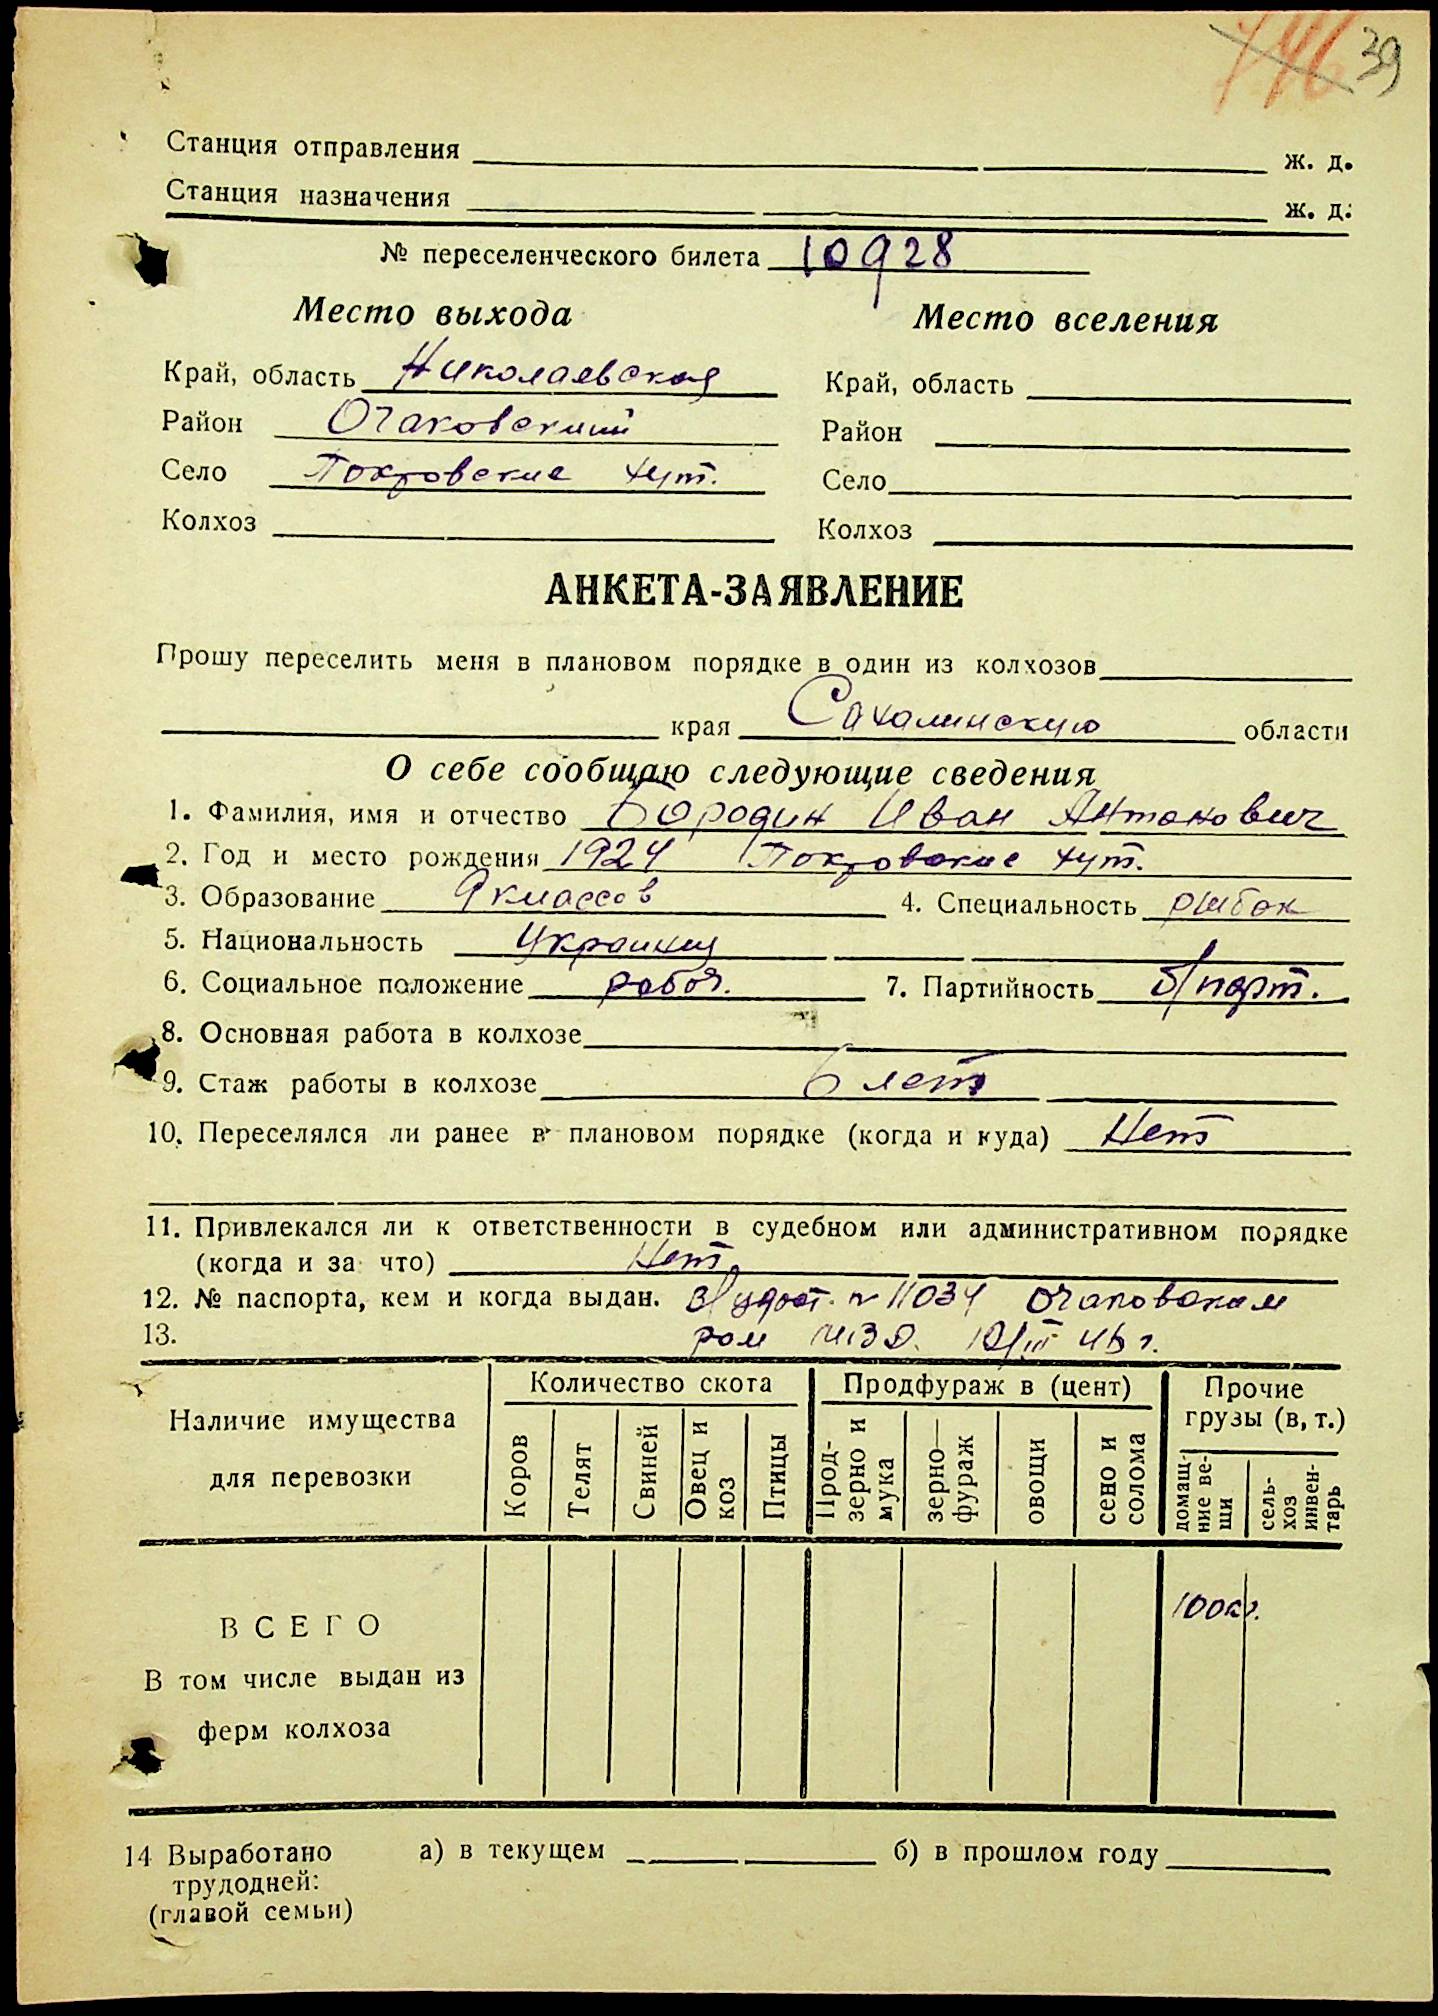 746 39
Станция отправления ж. д.
Станция назначения ж. д.
№ переселенческого билета 10928
Место выхода Место вселения
Край, область Николаевская Край, область
Район Очаковский Район
Село Покровские хут. Село
Колхоз Колхоз
АНКЕТА-ЗАЯВЛЕНИЕ
Прошу переселить меня в плановом порядке в один из колхозов
края Сахалинскую области
О себе сообщаю следующие сведения
1. Фамилия, имя и отчество Бородин Иван Антонович
2. Год и место рождения 1924 Покровские хут.
3. Образование 9 классов 4. Специальность рыбак
5. Национальность украинец
6. Социальное положение рабоч. 7. Партийность б/парт.
8. Основная работа в колхозе
9. Стаж работы в колхозе 6 лет
10. Переселялся ли ранее в плановом порядке (когда и куда) Нет
11. Привлекался ли к ответственности в судебном или административном порядке
(когда и за что) Нет
12. № паспорта, кем и когда выдан. в/удост. № 11034 Очаковским
13. ром 46 г.
Наличие имущества для перевозки
Количество скота Продфураж в (цент) Прочие грузы (в, т.)
Коров Телят Свиней Овец и коз Птицы Прод-зерно и мука зерно—фураж овощи сено и солома домаш-ние ве-щи сель-хоз инвен-тарь
ВСЕГО 100кг.
В том числе выдан из
ферм колхоза
14 Выработано а) в текущем б) в прошлом году
трудодней:
(главой семьи)